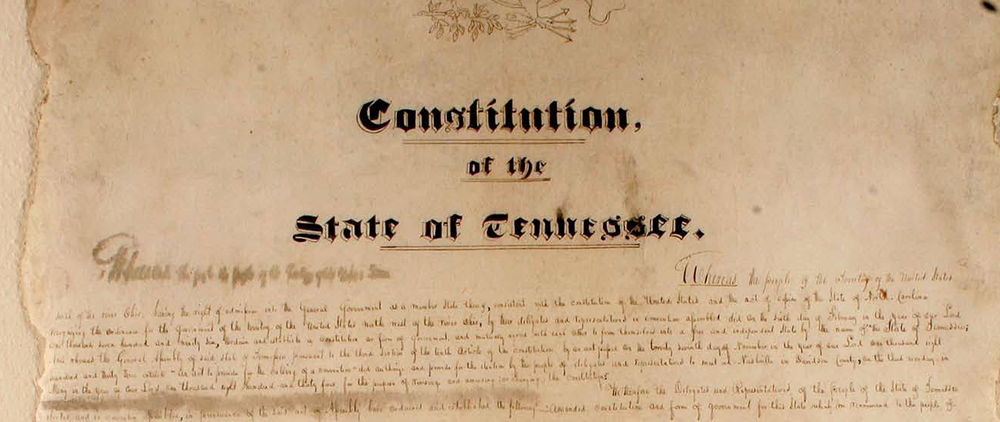 Constitution,
of the
State of Tennessee.
Whereas the people of the Territory of the United States
south of the river Ohio, having the right of admission into the General Government as a member State thereof, consistent with the constitution of the United States and the act of cession of the State of North Carolina
recognizing the ordinance for the Government of the territory of the United States north west of the river Ohio, by their delegates and representatives in convention assembled, did on the sixth day of February in the year of our Lord
one thousand seven hundred and ninety six, ordain and establish a constitution or form of Government, and mutually with each other to form themselves into a free and independent State by the name of the State of Tennessee;
the General Assembly of said State of Tennessee pursuant to the third section of the tenth Article of the constitution, by an act passed on the twenty seventh day of November in the year of our Lord one thousand eight
hundred and thirty three to provide for the calling of a convention
in the year of our Lord one thousand eight hundred and thirty four, for the purpose of revising and amending or changing, the constitution
the Delegates and Representatives of the People of the State of Tennessee
elected and in convention assembled, in pursuance of the said act of Assembly have ordained and established the following amended constitution and form of government for this State which we recommend to the people of